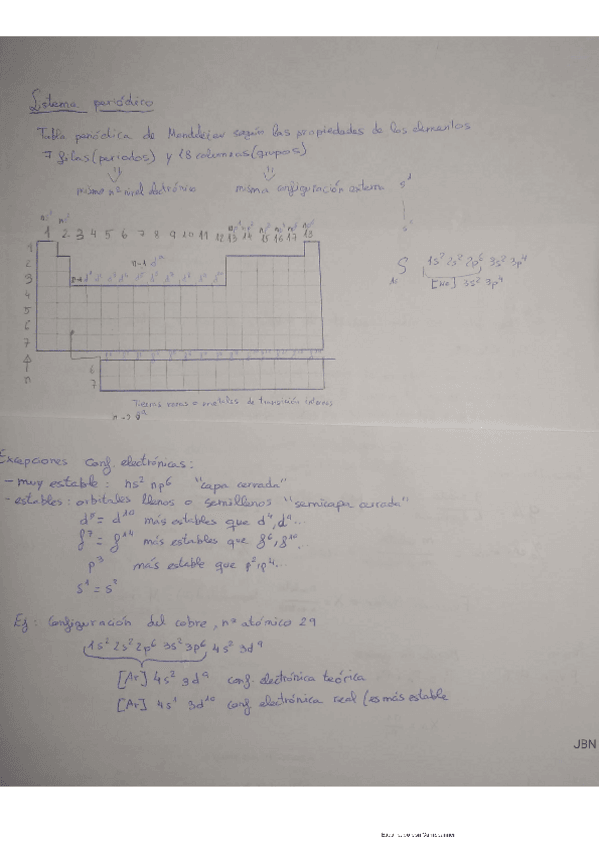 Sistema periódico
Tabla periódica de Mendeleiev según las propiedades de los elementos
7 filas (periodos) y 18 columnas (grupos)
mismo nº nivel electrónico misma configuración externa s¹
s²
ns¹ ns²
1 2 3 4 5 6 7 8 9 10 11 12 13 14 15 16 17 18
1
2 n-1 dⁿ
3
4
5
6
7
n
16 S 1s² 2s² 2p⁶ 3s² 3p⁴
[Ne] 3s² 3p⁴
6
7
Tierras raras o metales de transición interna
Excepciones conf. electrónicas:
- muy estable: ns² np⁶ "capa cerrada"
- estables: orbitales llenos o semillenos "semicapa cerrada"
d⁵ = d¹⁰ más estables que d⁴, d⁹...
f⁷ = f¹⁴ más estables que f⁶, f¹⁰...
p³ más estable que p², p⁴...
s¹ = s²
Ej: Configuración del cobre, nº atómico 29
1s² 2s² 2p⁶ 3s² 3p⁶ 4s² 3d⁹
[Ar] 4s² 3d⁹ conf. electrónica teórica
[Ar] 4s¹ 3d¹⁰ conf. electrónica real (es más estable
JBN